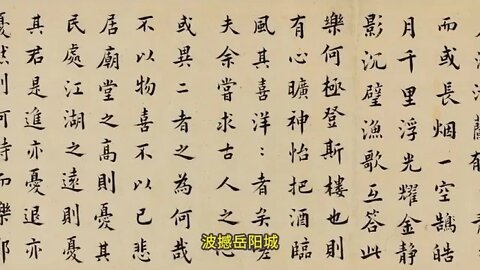 而或長烟一空鵠皓
月千里浮光耀金静
影沉璧漁歌互答此
樂何極登斯樓也則
有心曠神怡把酒臨
風其喜洋：者矣嗟
夫余嘗求古人之
或異二者之為何哉
不以物喜不以己悲
居廟堂之高則憂其
民處江湖之遠則憂
其君是進亦憂退亦
憂然則何時而樂耶
波撼岳阳城